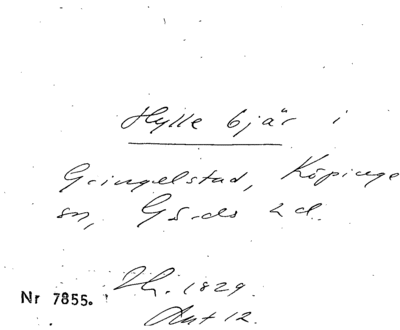 Hylle bjär i
Gringelstad, Köpinge
sn, Gärds hd.
Nr 7855. Lh. 1829.
Akt 12.